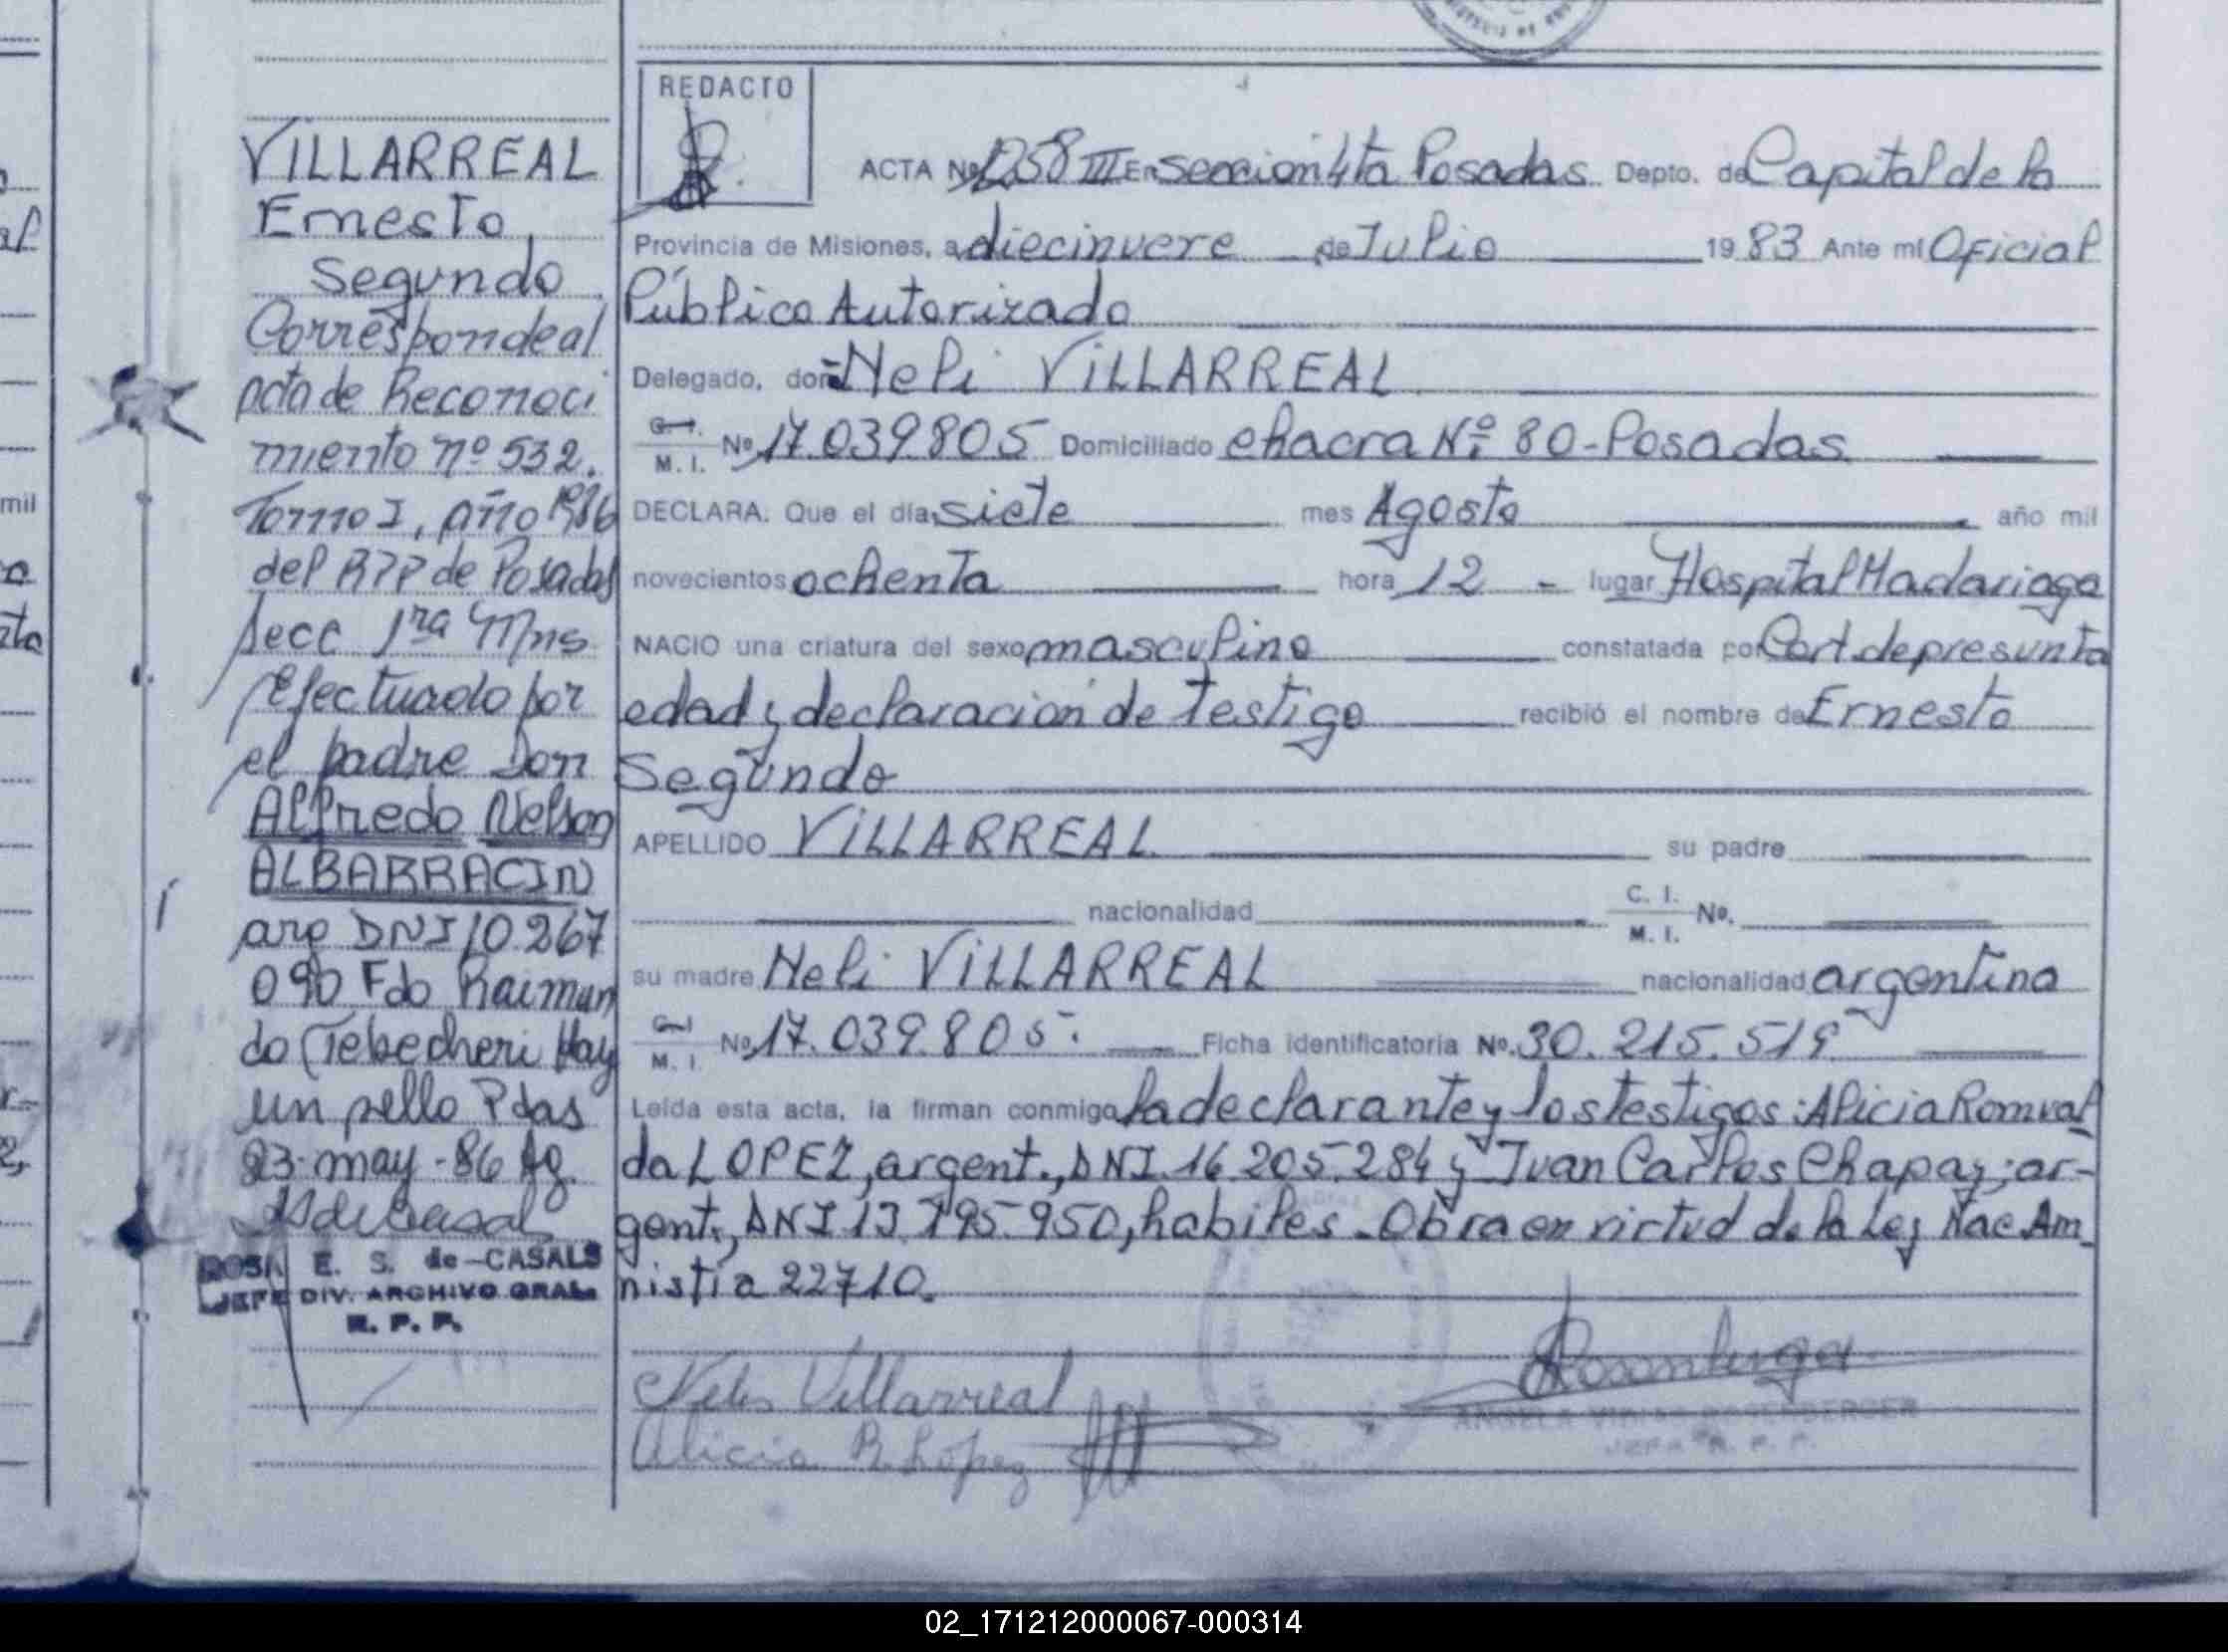 VILLARREAL
Ernesto,
Segundo
Corresponde al
acta de Reconoci
miento nº 532.
Tomo I, año 1986
del RPP de Posadas
Secc 1ra Mns
efectuado por
el padre Don
Alfredo Nelson
ALBARRACIN
arg DNI 10 267
090 Fdo Raimun
do Tebecheri Hay
un sello Pdas
23 may - 86
ROSA E. S. de CASALS
JEFE DIV. ARCHIVO GRAL.
R. P. P.
REDACTO
ACTA Nº 1258 III En seccion 4ta Posadas Depto. de Capital de la
Provincia de Misiones, a diecinuere de Julio 1983 Ante mí Oficial
Público Autorizado
Delegado, doña Neli VILLARREAL
C. I. M. I. Nº 17.039805 Domiciliado chacra Nº 80-Posadas
DECLARA. Que el día siete mes Agosto año mil
novecientos ochenta hora 12 - lugar Hospital Madariaga
NACIO una criatura del sexo masculino constatada por Cert. de presunta
edad y declaracion de testigo recibió el nombre de Ernesto
Segundo
APELLIDO VILLARREAL su padre
nacionalidad C. I. M. I. Nº.
su madre Neli VILLARREAL nacionalidad argentina
C. I. M. I. Nº 17.039.805. Ficha identificatoria Nº. 30.215.519
Leída esta acta, la firman conmigo la declarante y los testigos: Alicia Romual
da LOPEZ, argent., DNI. 16 205.284 y Juan Carlos Chapay; ar-
gent., DNI 13 795-950, habiles. Obra en virtud de la Ley Nac Am
nistía 22710.
Villarreal
Alicia R. López
ANGELA ROSENBERGER
JEFA R. P. P.
mil
02_171212000067-000314